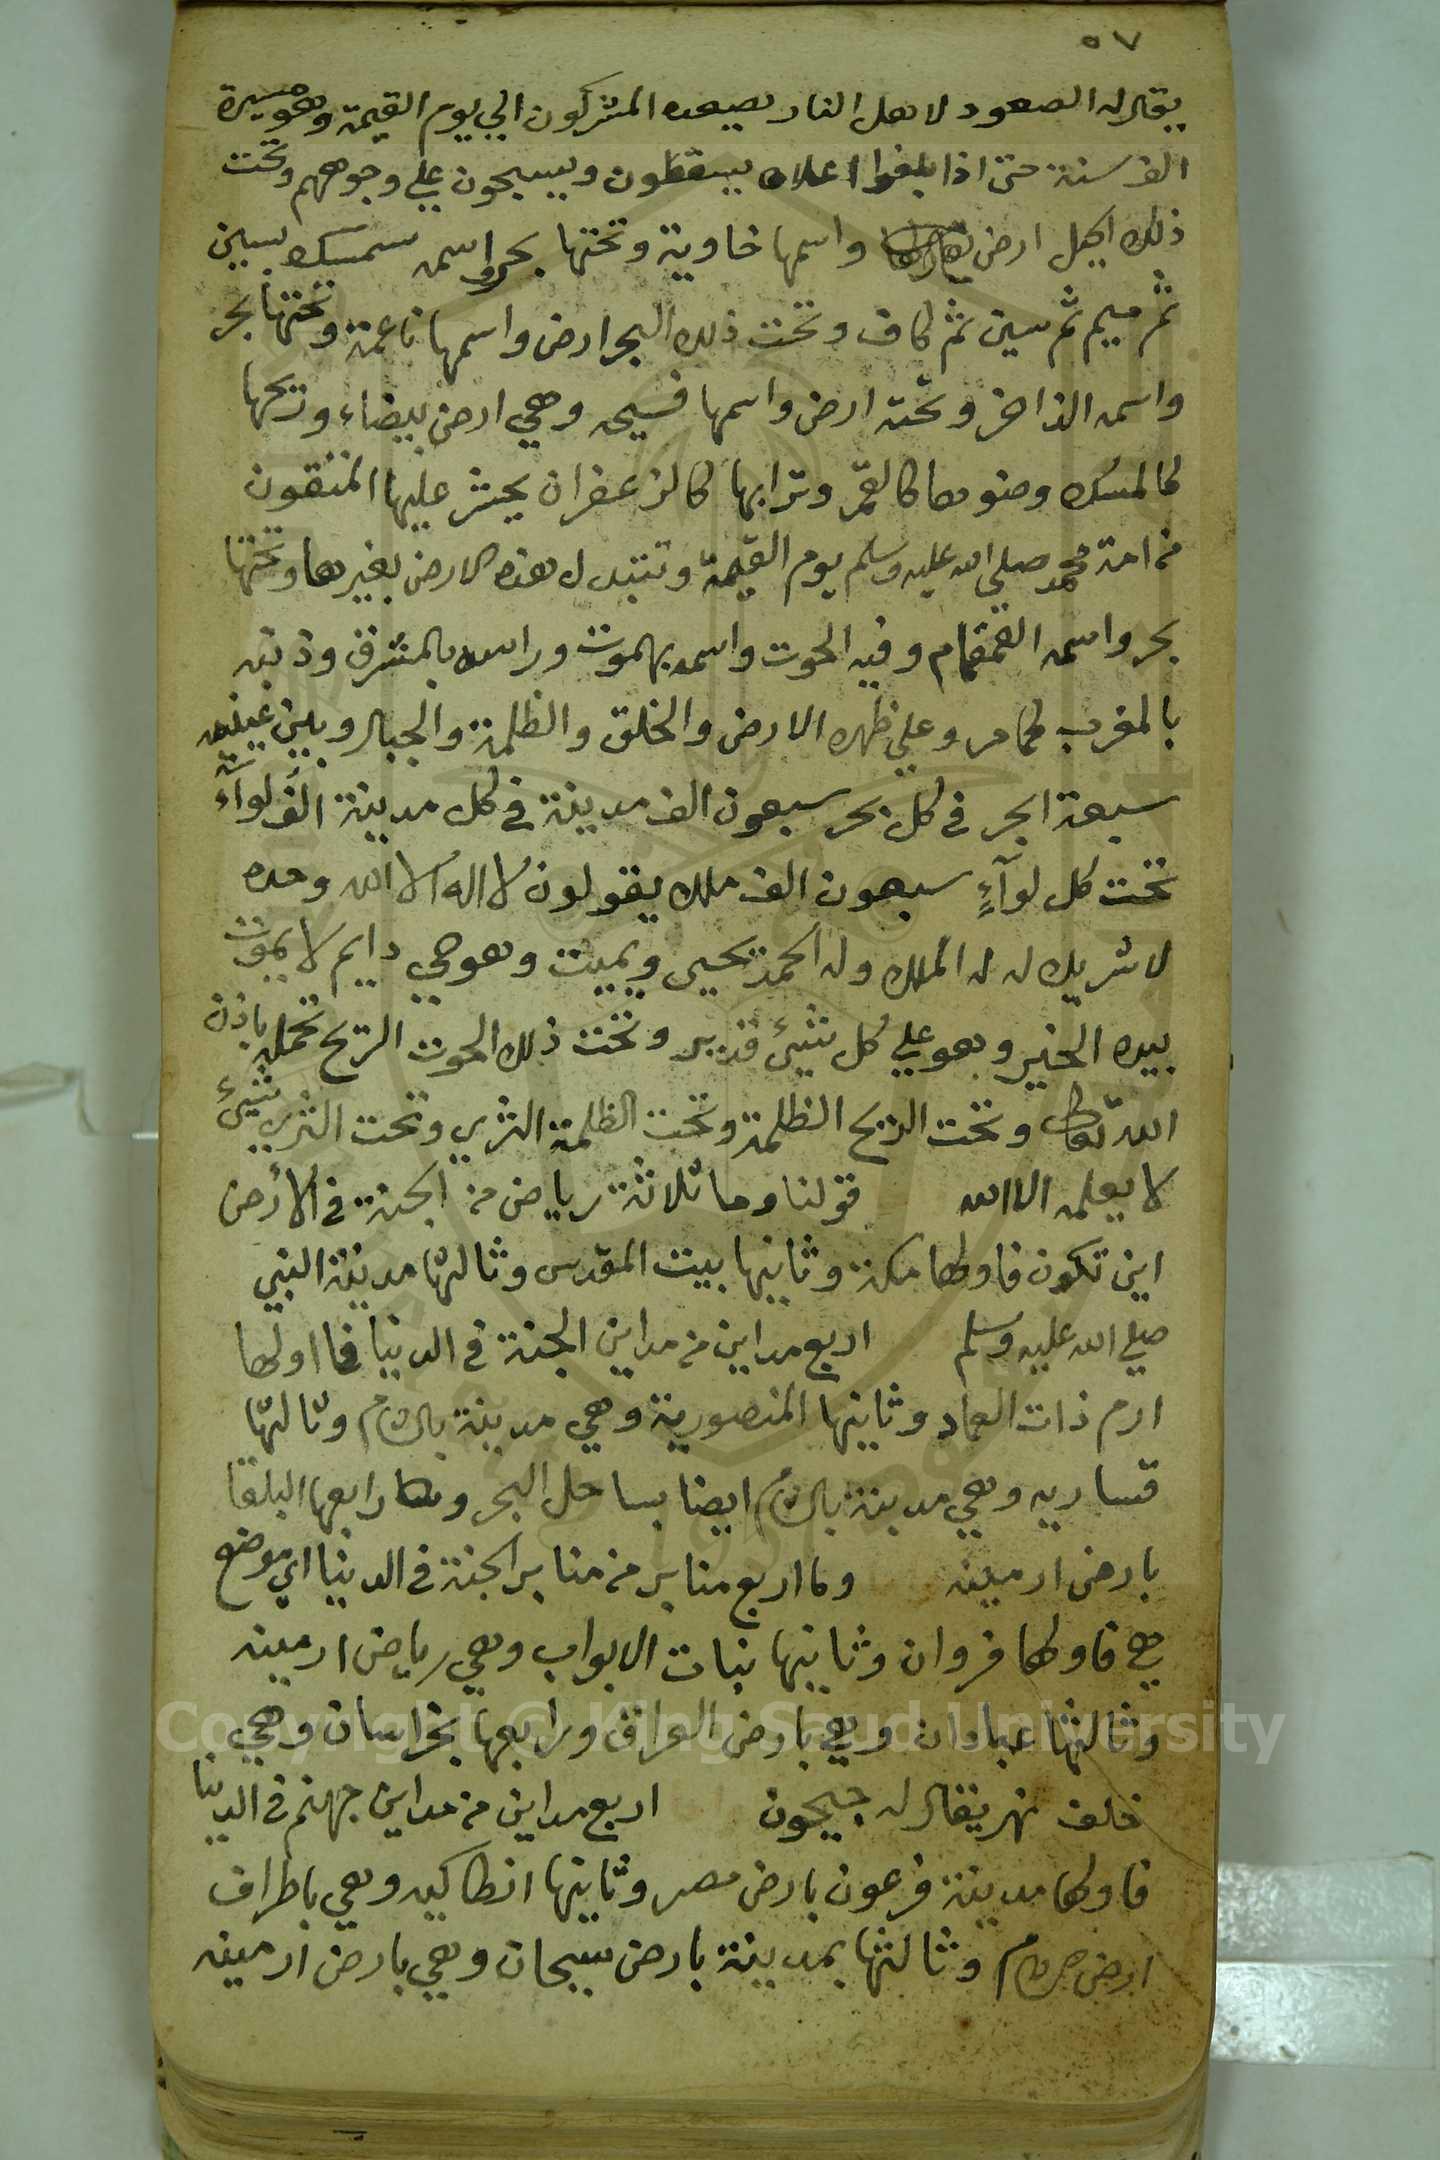 ٥٧
يقال له الصعود لاهل النار يصعده المشركون الي يوم القيمة وهو مسيرة
الف سنة حتى اذا بلغوا اعلاه يسقطون ويسبحون علي وجوههم وتحت
ذلك الجبل ارض واسمها خاوية وتحتها بحر واسمه سمسك بسين
ثم ميم ثم سين ثم كاف وتحت ذلك البحر ارض واسمها ناعمة وتحتها بحر
واسمه الذاخر وتحته ارض واسمها فسيحه وهي ارض بيضاء وريحها
كالمسك وضوءها كالقمر وترابها كالزعفران يحشر عليها المتقون
من امة محمد صلي الله عليه وسلم يوم القيمة وتتبدل هذه الارض بغيرها وتحتها
بحر واسمه القمقام وفيه الحوت واسمه بهموت وراسه بالمشرق وذنبه
بالمغرب كما مر وعلي ظهره الارض والخلق والظلمة والجبال وبين عينيه
سبعة ابحر في كل بحر سبعون الف مدينة في كل مدينة الف لوآء
تحت كل لوآءٍ سبعون الف ملك يقولون لا اله الا الله وحده
لا شريك له له الملك وله الحمد يحيى ويميت وهو حي دايم لا يموت
بيده الخير وهو علي كل شيئ قدير وتحت ذلك الحوت الريح تحمله باذن
الله تعالى وتحت الريح الظلمة وتحت الظلمة الثري وتحت الثري شيئ
لا يعلمه الا الله قولنا وما ثلاثة رياض من الجنة في الأرض
اين تكون فاولها مكة وثانيها بيت المقدس وثالثها مدينة النبي
صلي الله عليه وسلم اربع مداين من مداين الجنة في الدنيا فااولها
ارم ذات العماد وثانيها المنصورية وهي مدينة بالشام وثالثها
قساريه وهي مدينة بالشام ايضا بساحل البحر ورابعها البلقا
بارض ارمينه وما اربع منابر من منابر الجنة في الدنيا اي موضع
هي فاولها قروان وثانيها بنات الابواب وهي رياض ارمينه
وثالثها عبادان وهي بارض العراق ورابعها بخراسان وهي
خلف نهر يقال له جيحون اربع مداين من مداين جهنم في الدنيا
فاولها مدينة فرعون بارض مصر وثانيها انطاكيه وهي باطراف
ارض الشام وثالثها بمدينة بارض سيحان وهي بارض ارمينه
Copyright © King Saud University